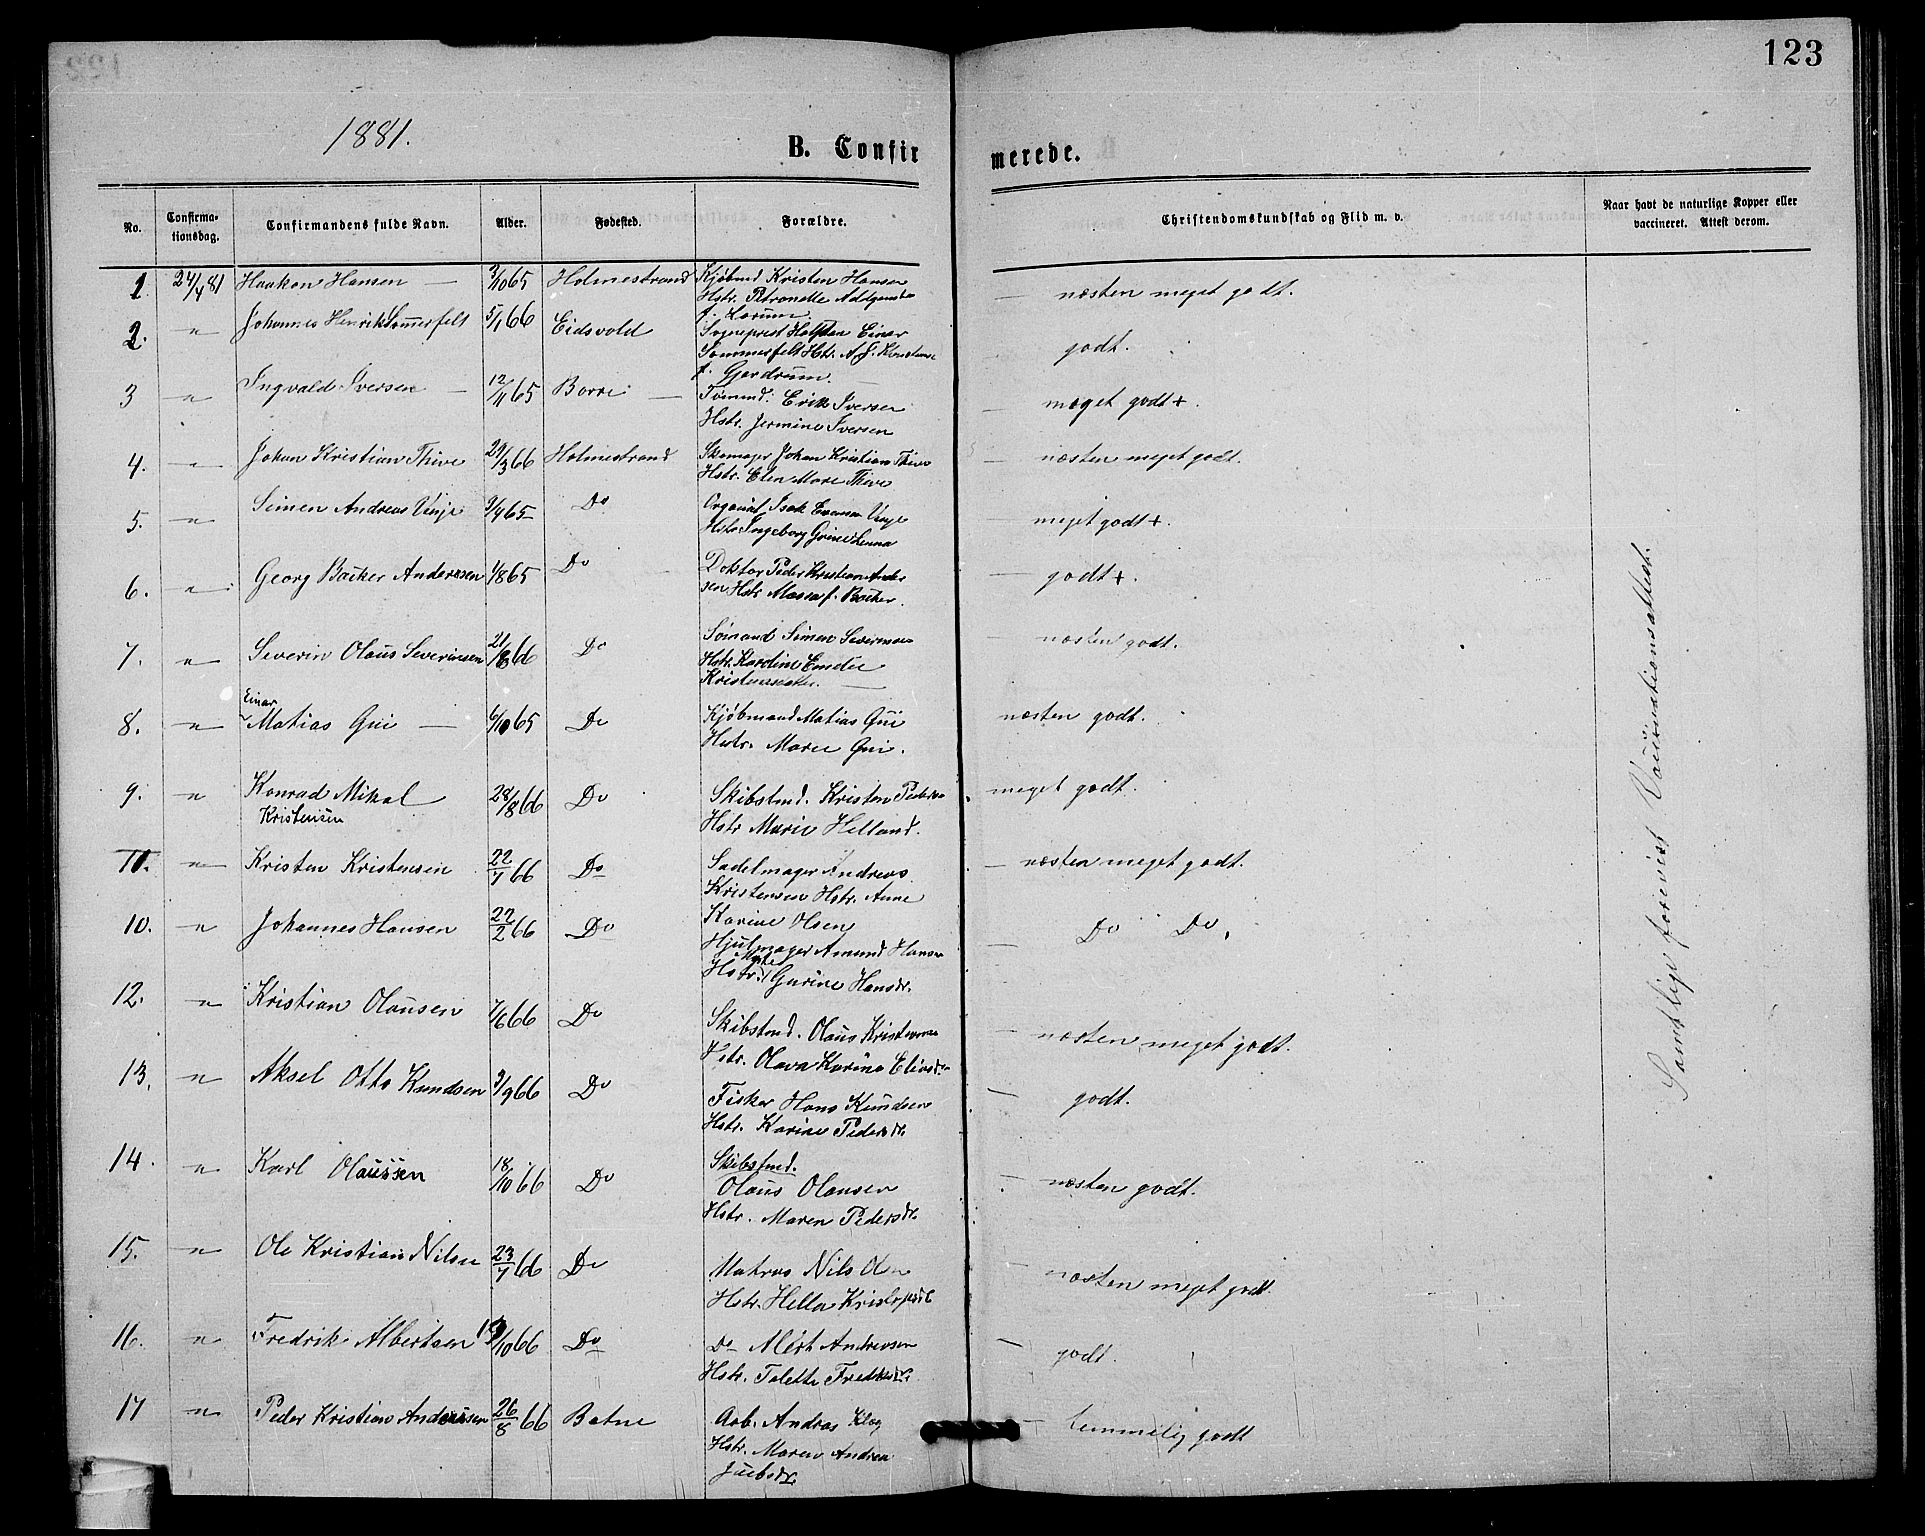 123
1881.
B. Confir merede.
No. Confirma-tionsdag. Confirmandens fulde Navn. Alder. Fødested. Forældre. Christendomskundskab og Flid m. v. Naar havt de naturlige Kopper eller vaccineret. Attest derom.
1. 24/4 81 Haakon Hansen — 3/10 65 Holmestrand Kjøbmd Kristen Hansen — næsten meget godt.
Hstr. Petronelle
f. Larum
2. " Johannes Henrik Sommerfelt 5/1 66 Eidsvold Sogneprest Halfdan Einar godt.
Sommerfelt Hstr. A. J.
f. Gjerdrum.
3 " Ingvald Iversen — 12/11 65 Borre — Tømmd. Erik Iversen — meget godt +.
Hstr. Jermine Iversen
4. " Johan Kristian Thive 29/3 66 Holmestrand Skomager Johan Kristian Thive — næsten meget godt.
Hstr. Elen Mare Thive
5. " Simen Andreas Vinje 9/4 65 Do Organist Isak Vinje — meget godt +.
Hstr. Ingeborg
6. " Georg Backer Anderssen 1/8 65 Do Doktor Peder Kristian Ander — godt +.
sen Hstr. f. Backer.
7. " Severin Olaus Severinsen 21/8 66 Do Sømand Simen Severinsen — næsten godt.
Hstr. Kardine Emilie
Kristensdatter —
8. " Einar
Matias Gui — 6/10 65 Do Kjøbmand Matias Gui næsten godt.
Hstr. Maren Gui.
9. " Konrad Mikal 28/8 66 Do Skibstmd. Kristen Pedersen meget godt.
Kristensen Hstr Marie Helland.
11. " Kristen Kristensen 22/7 66 Do Sadelmager Andreas — næsten meget godt.
Kristensen Hstr. Anne
Karine Olsen
10. " Johannes Hansen 22/2 66 Do Hjulmager Amund Hansen — Do Do.
Hstr. Gurine Hansdr.
12. " Kristian Olausen 7/6 66 Do Skibstmd. Olaus Kristensen — næsten meget godt.
Hstr. Olava Karine
13. " Aksel Otto Knudsen 3/9 66 Do Fisker Hans Knudsen — godt.
Hstr. Karine Pedersdr.
14. " Karl Olaussen 18/10 66 Do Skibstmd.
Olaus Olausen — næsten godt.
Hstr. Maren Pedersdr.
15. " Ole Kristian Nilsen 23/7 66 Do Matros Nils Olsen — næsten meget godt.
Hstr. Hella Kristofsdr
16. " Fredrik Albertsen 19/10 66 Do Do Albert Andreasen — godt.
Hstr. Tolette Fredriksdr.
17 " Peder Kristian Anderssen 26/8 66 Botne Arb. Andras — temmelig godt
Hstr. Maren Andrea
Jacobsdr
Samtlige forevist Vaccinationsattest.